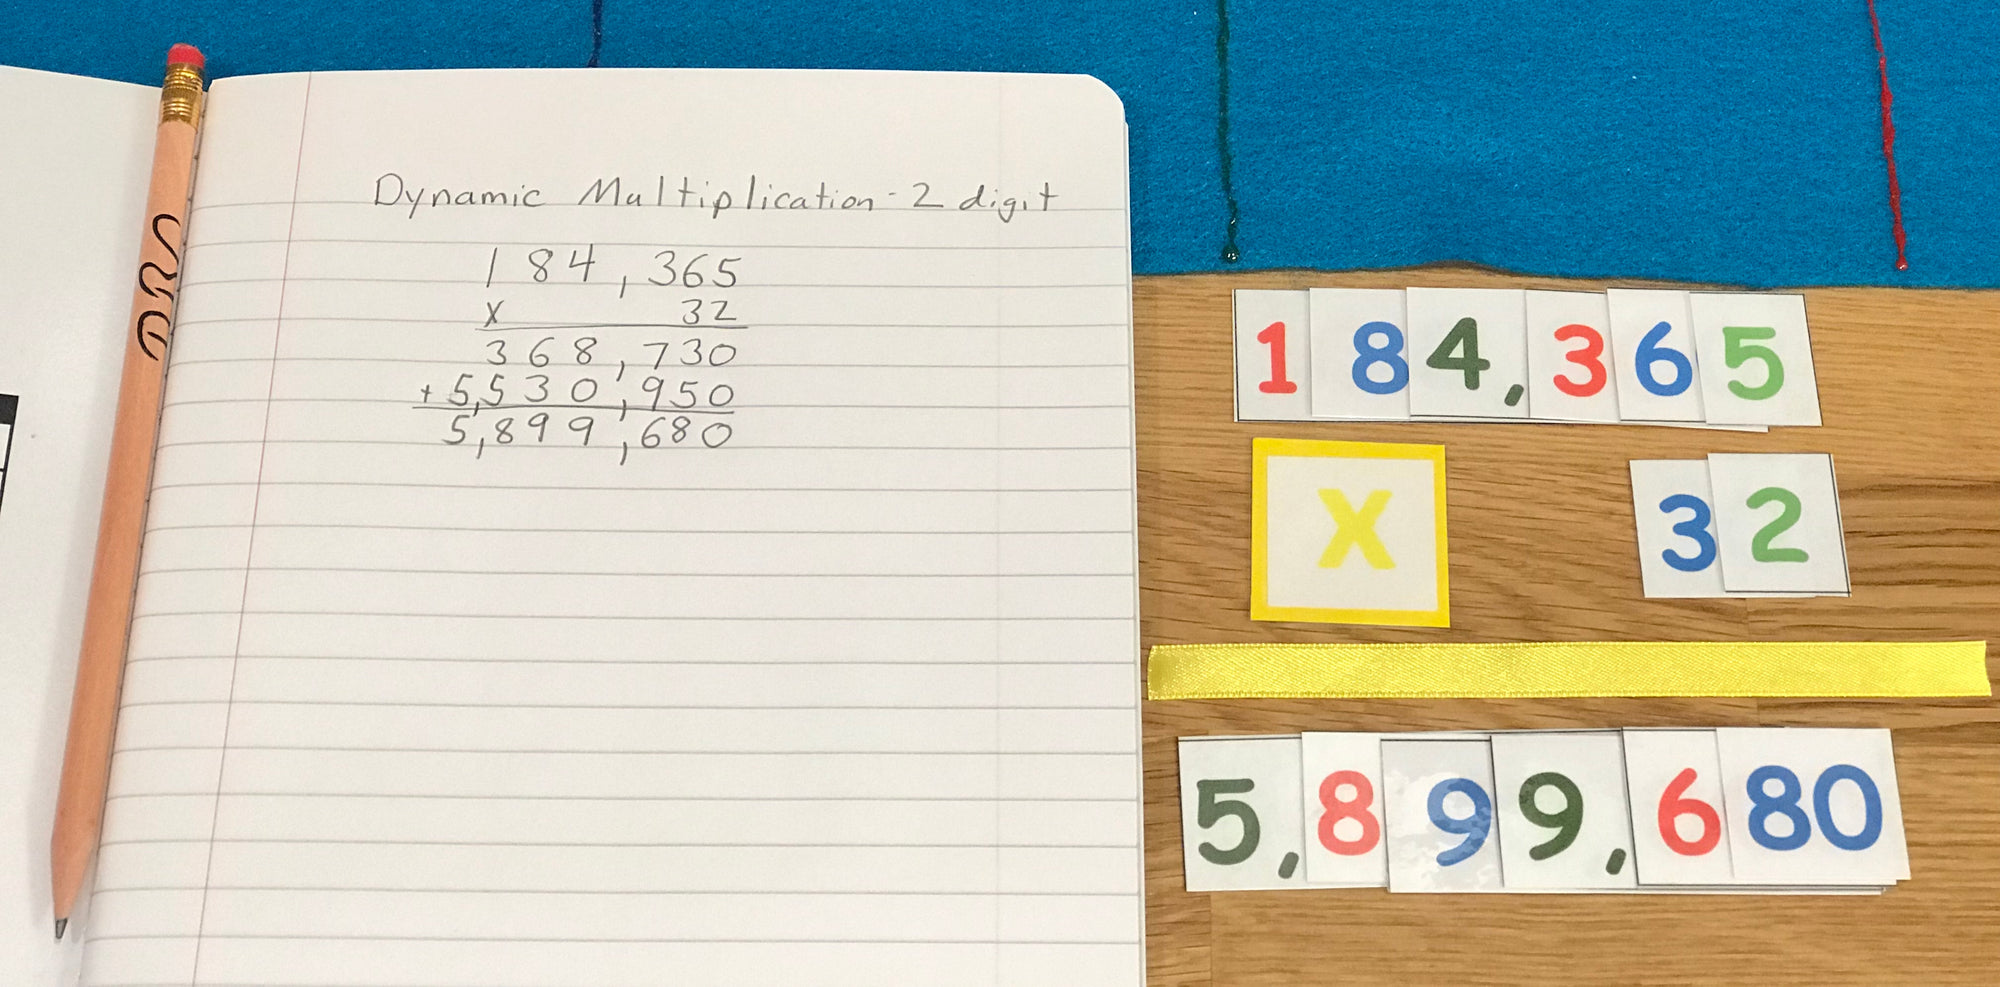 Dynamic Multiplication - 2 digit
184,365
x 32
368,730
+ 5,530,950
5,899,680
184,365
x 32
5,899,680